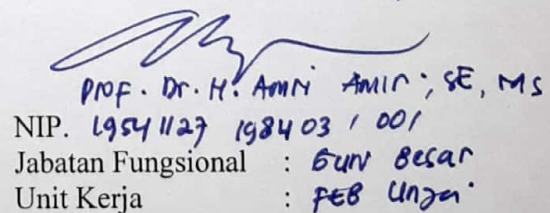 Prof. Dr. H. Amri Amir, SE, MS
NIP. 19541127 198403 1 001
Jabatan Fungsional : Guru Besar
Unit Kerja : FEB Unja